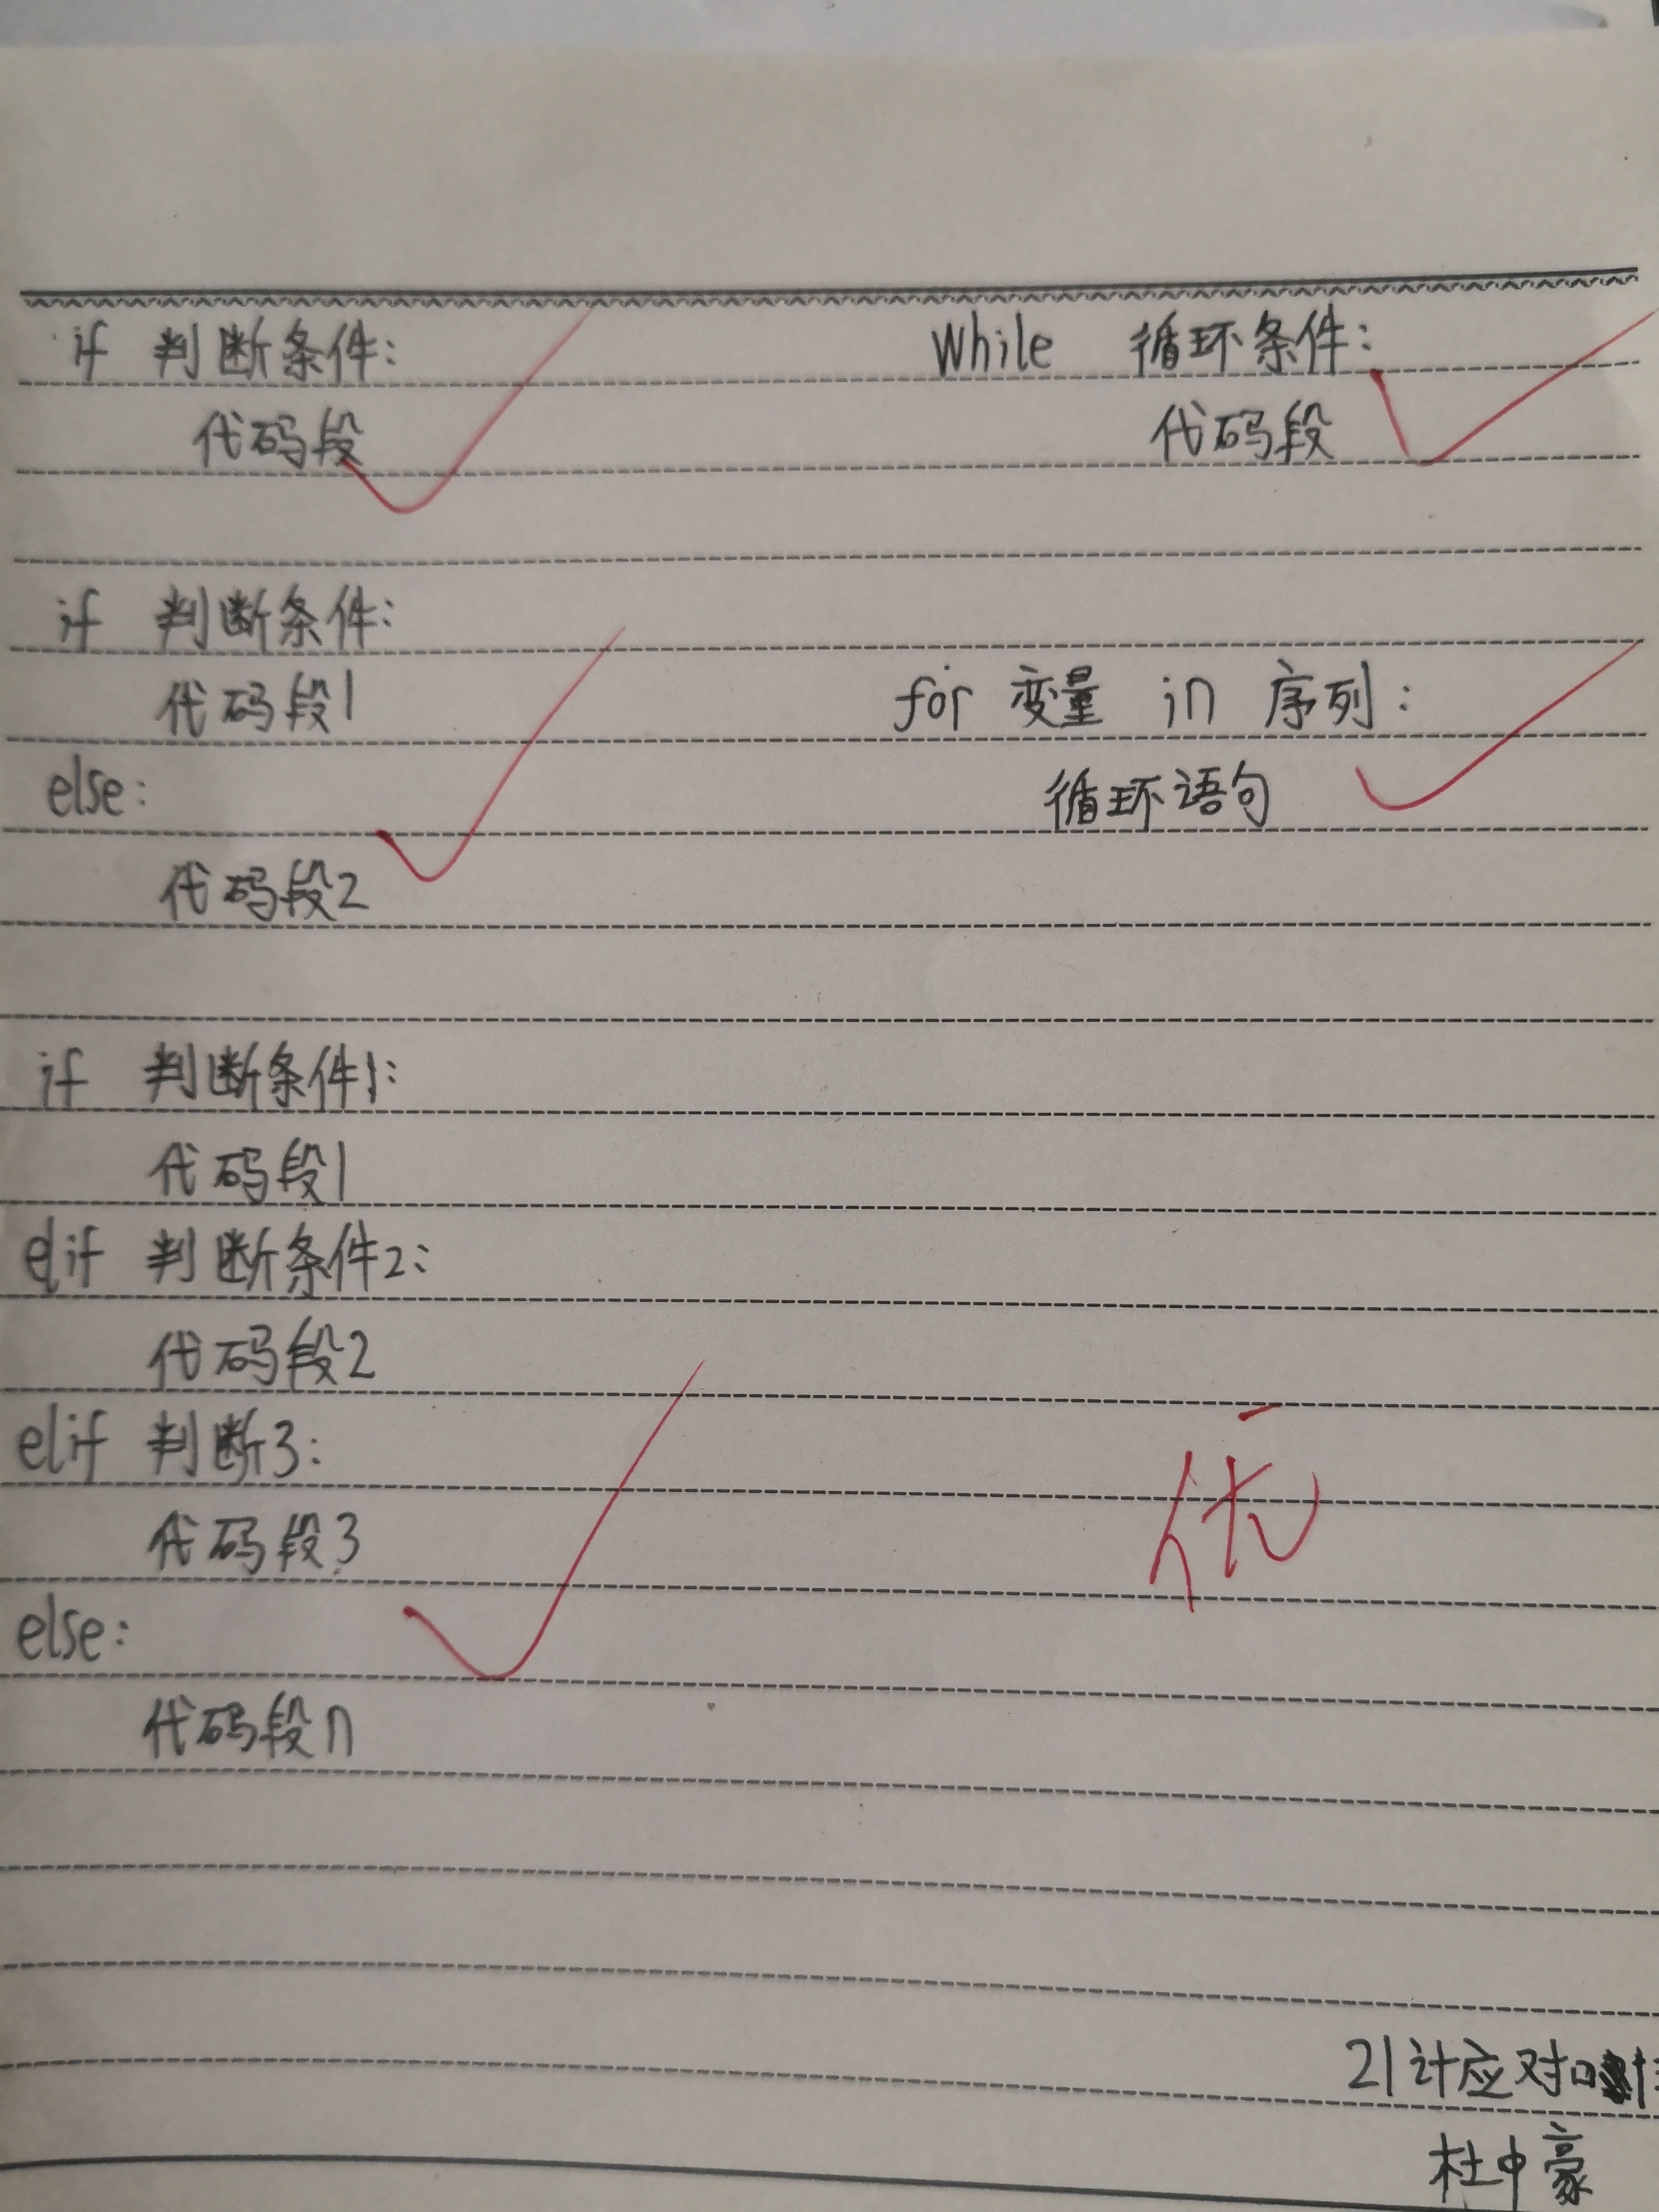 if 判断条件:
代码段
if 判断条件:
代码段1
else:
代码段2
if 判断条件1:
代码段1
elif 判断条件2:
代码段2
elif 判断3:
代码段3
else:
代码段n
While 循环条件:
代码段
for 变量 in 序列:
循环语句
优
21计应对口
杜中豪